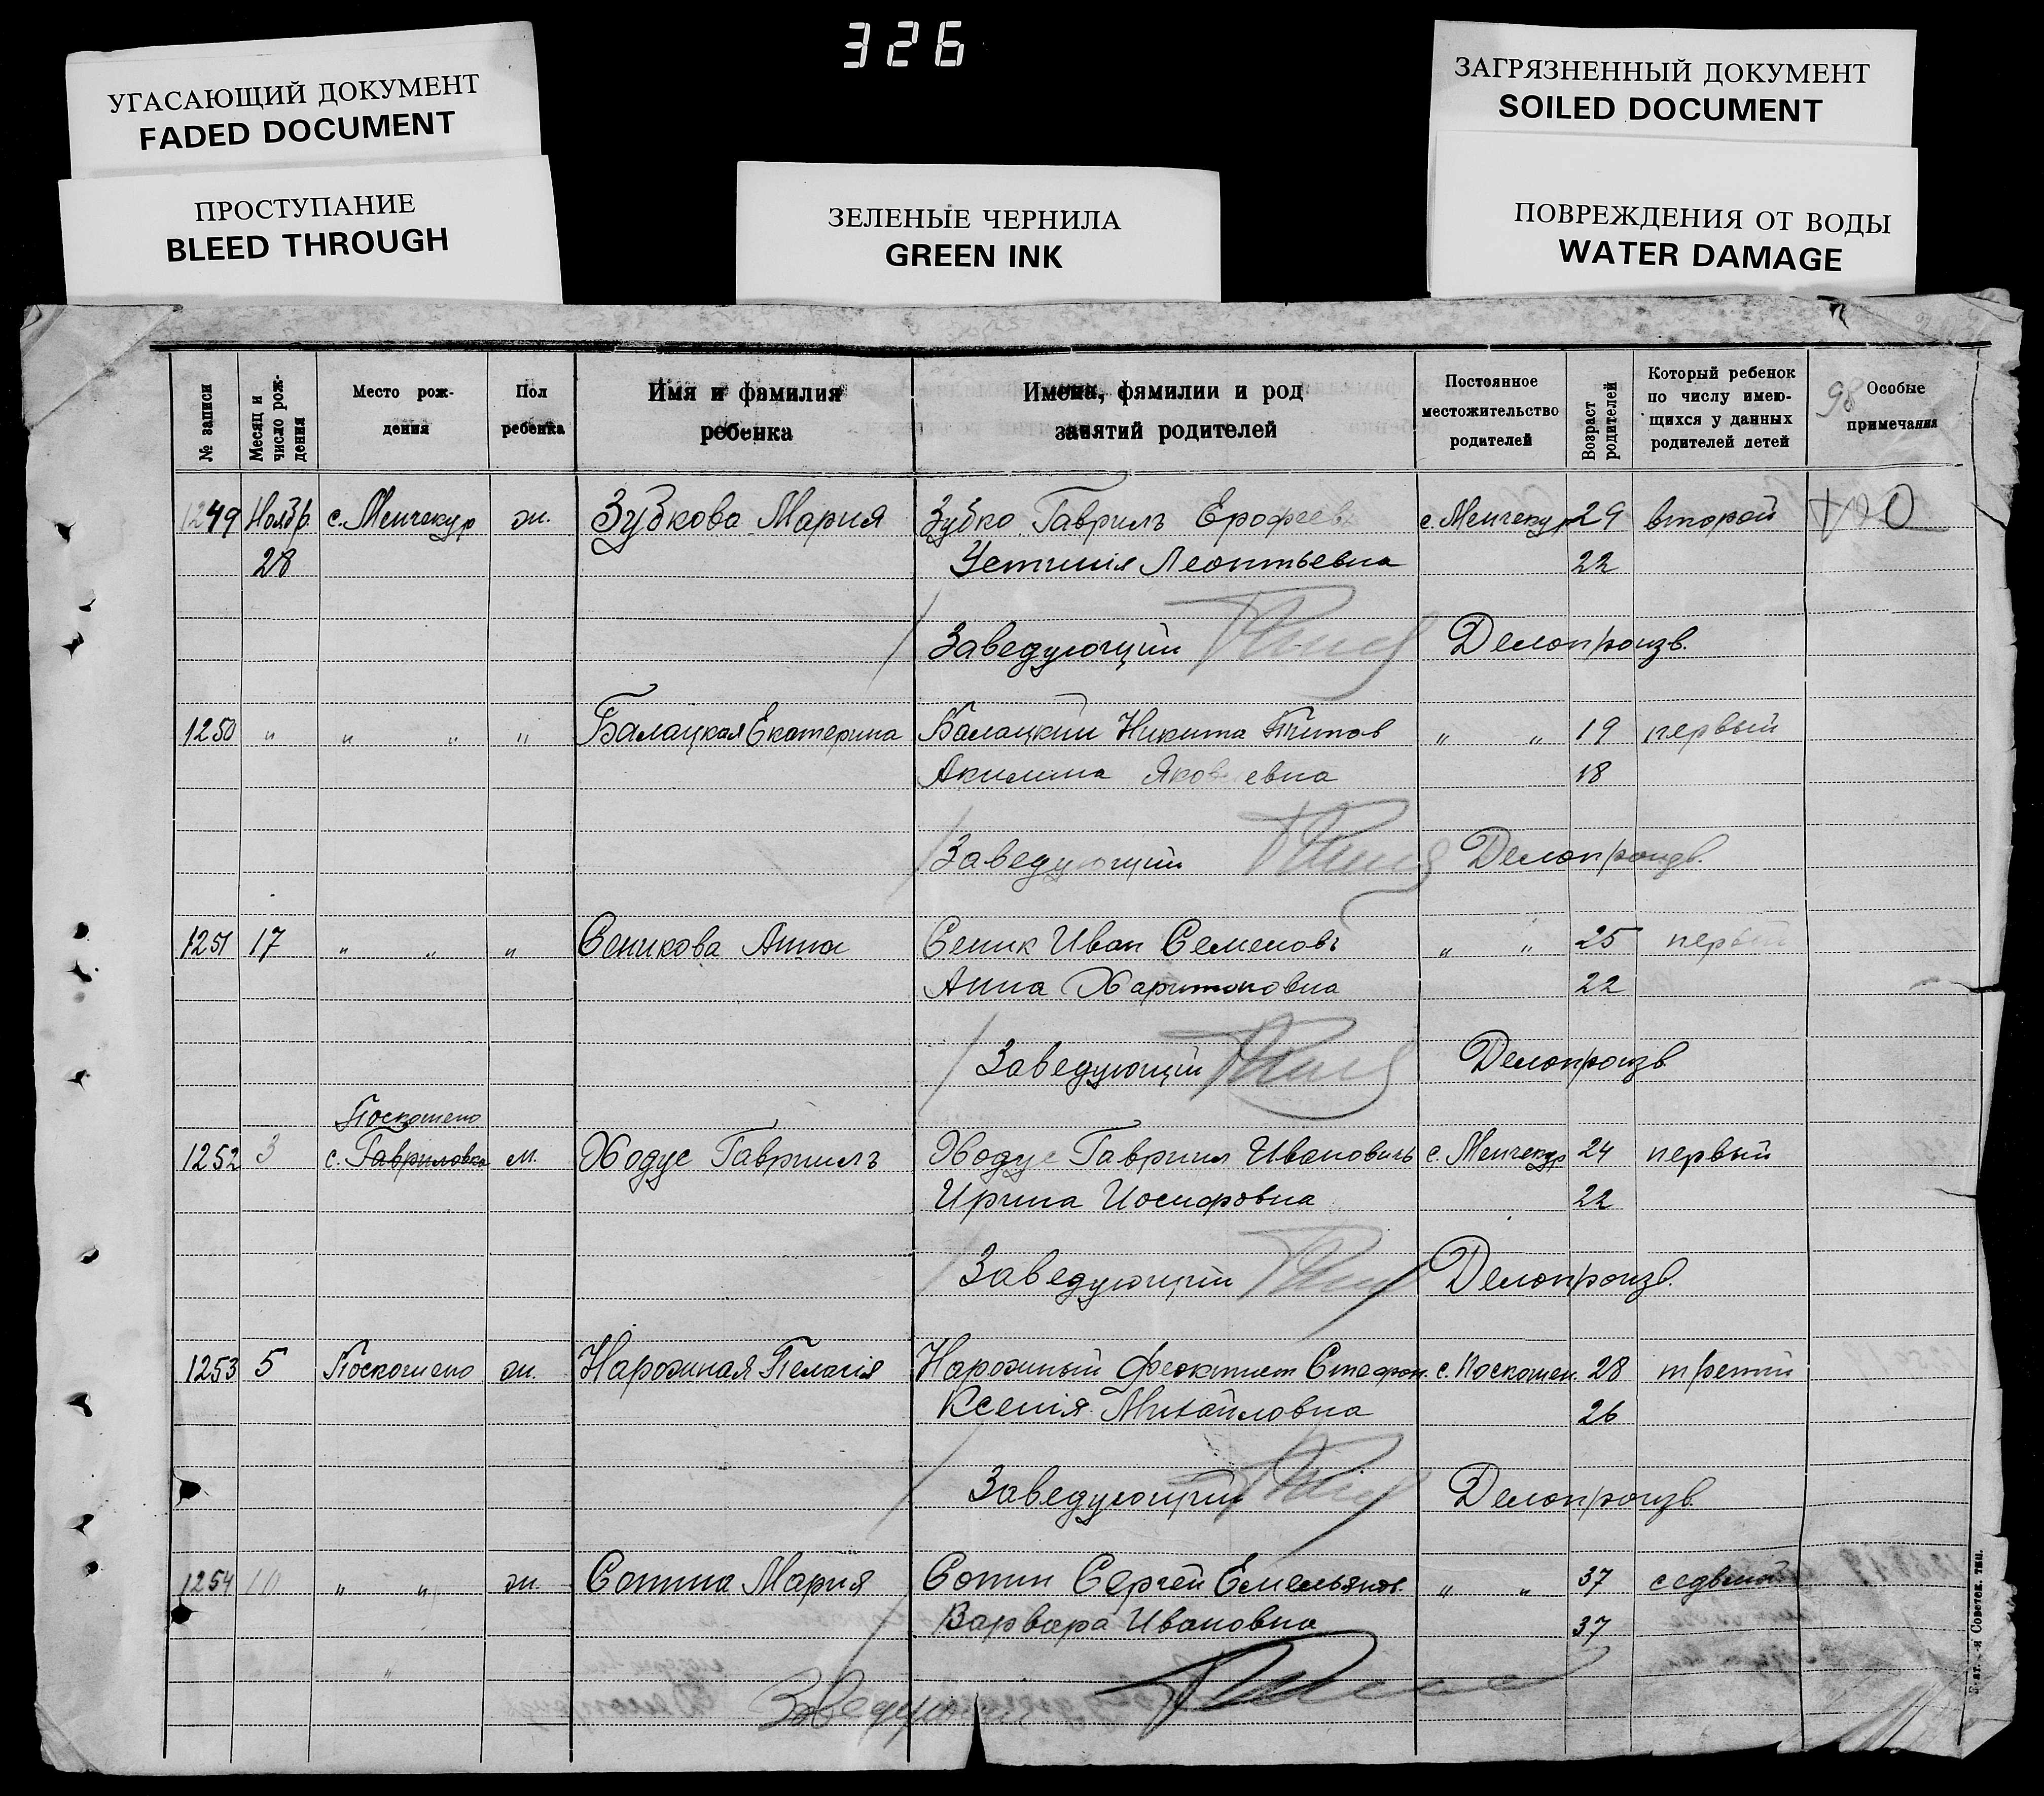 326
УГАСАЮЩИЙ ДОКУМЕНТ
FADED DOCUMENT
ПРОСТУПАНИЕ
BLEED THROUGH
ЗЕЛЕНЫЕ ЧЕРНИЛА
GREEN INK
ЗАГРЯЗНЕННЫЙ ДОКУМЕНТ
SOILED DOCUMENT
ПОВРЕЖДЕНИЯ ОТ ВОДЫ
WATER DAMAGE
№ записи
Месяц и число рож-дения
Место рож-
дения
Пол
ребенка
Имя и фамилия
ребенка
Имена, фамилии и род
занятий родителей
Постоянное
местожительство
родителей
Возраст родителей
Который ребенок
по числу имею-
щихся у данных
родителей детей
98 Особые
примечания
1249 Ноябр. с. Менчекур ж. Зубкова Мария Зубко Гаврилъ Ерофеев с. Менчекур 29 второй
28 Устинія Леонтьевна 22
Заведующий Делопроизв.
1250 " " " " Балацкая Екатерина Балацкий Никита Титов " " 19 первый
Акилина Яковлевна 18
Заведующий Делопроизв.
1251 17 " " " Сеникова Анна Сеник Иван Семеновъ " " 25 первый
Анна Харитоновна 22
Заведующий Делопроизв.
Поскошено
1252 3 с. Гавриловка м. Ходус Гавриилъ Ходус Гавриил Ивановичъ с. Менчекур 24 первый
Ирина Иосифовна 22
Заведующий Делопроизв.
1253 5 Поскошено ж. Нарожная Пелагія Нарожный Феоктист Стефан. с. Поскошен. 28 третий
Ксенія Михайловна 26
Заведующий Делопроизв.
1254 10 " " ж. Сопина Мария Сопин Сергей Емельянов. " " 37 седьмой
Варвара Ивановна 37
Заведующий